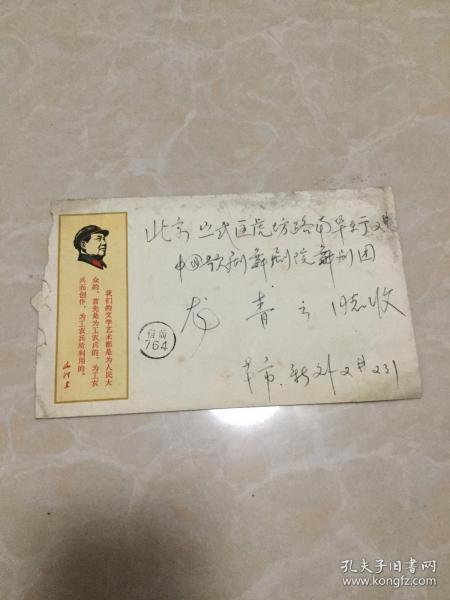 我们的文学艺术都是为人民大
众的，首先是为工农兵的，为工农
兵而创作，为工农兵所利用的。
毛泽东
北京宣武区虎坊路南华东
中国歌剧舞剧院舞剧团
龙 青 云 同志收
764
本市.新外
231
孔夫子旧书网
www.kongfz.com